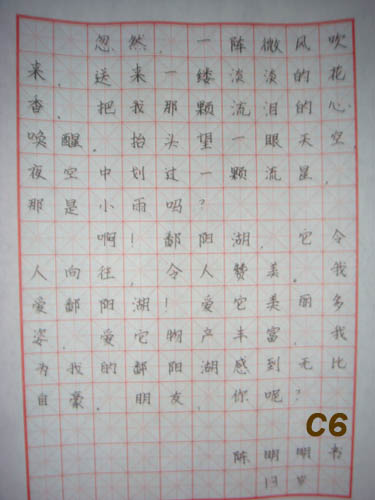 忽然，一阵微风吹
来，送来一缕淡淡的花
香，把我那颗流泪的心
唤醒，抬头望一眼天空，
夜空中划过一颗流星，
那是小雨吗？
啊！鄱阳湖，它令
人向往，令人赞美，我
爱鄱阳湖！爱它美丽多
姿，爱它物产丰富，我
为我的鄱阳湖感到无比
自豪，朋友，你呢？
C6
陈明明书
13岁